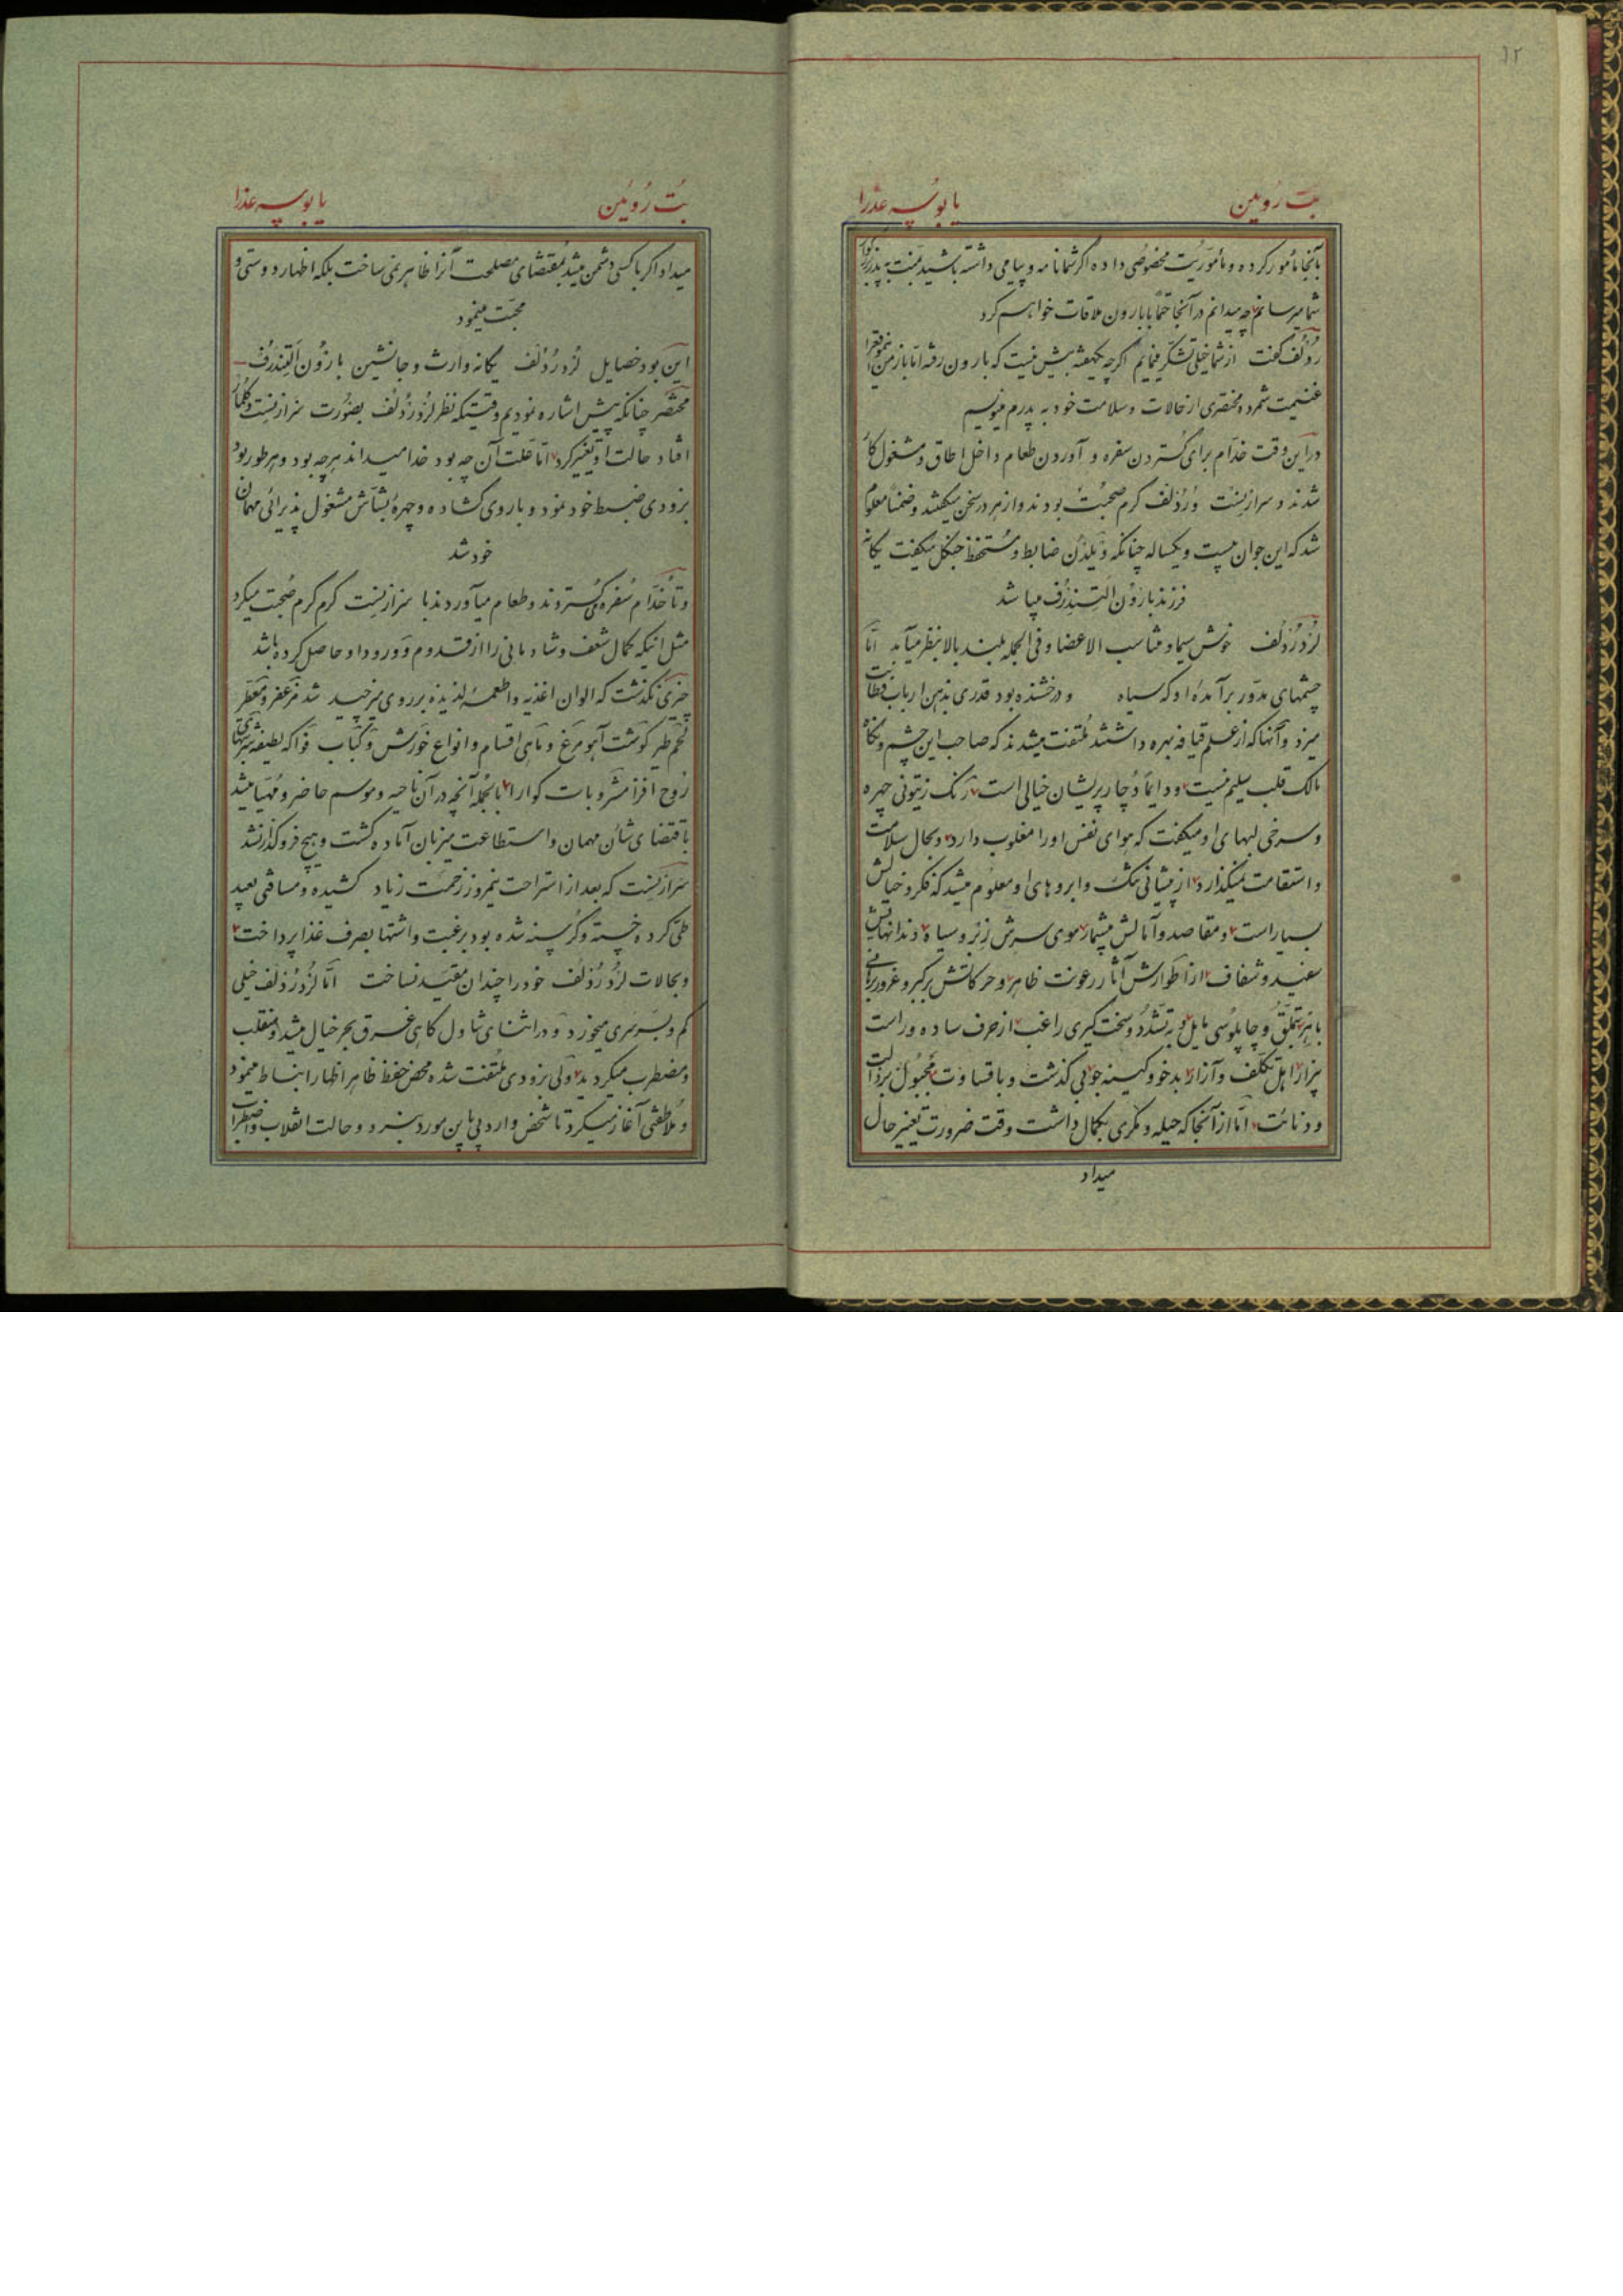 ۱۲
بت روئین یا بوسه عذرا
بآنجا مأمور کرده و مأموریت مخصوصی داده اگر شما نامه و پیامی داشته باشید بمنت به پدر بزرگوار
شما میرسانم چه میدانم در آنجا حتماً با بارون ملاقات خواهم کرد
ردلف گفت از شما خیلی تشکر مینمایم اگرچه یکهفته بیش نیست که بارون رفته اما باز من این موقع را
غنیمت شمرده مختصری از حالات و سلامت خود به پدرم مینویسم
در این وقت خدام برای گستردن سفره و آوردن طعام داخل اطاق و مشغول کار
شدند و سرارنست و ردلف گرم صحبت بودند و از هر در سخن میگفتند و ضمناً معلوم
شد که این جوان بیست و یکساله چنانکه ویلدن ضابط و مستحفظ جنگل میگفت یگانه
فرزند بارون التندرف میباشد
لرد ردلف خوش سیما و متناسب الاعضا و فی الجمله بلند بالا بنظر میآمد اما
چشمهای مدور برآمدهٔ او که سیاه و درخشنده بود قدری بذهن ارباب فطانت
میزد و آنها که از علم قیافه بهره داشتند ملتفت میشدند که صاحب این چشم و نگاه
مالک قلب سلیم نیست و دایماً دچار پریشان خیالی است رنگ زیتونی چهره
و سرخی لبهای او میگفت که هوای نفس او را مغلوب دارد و بحال سلامت
و استقامت نمیگذارد از پیشانی تنگ و ابروهای او معلوم میشد که فکر و خیالش
بسیار است و مقاصد و آمالش بیشمار موی سرش زبر و سیاه و دندانهایش
سفید و شفاف از اطوارش آثار رعونت ظاهر و حرکاتش بر کبر و غرور برهانی
باهر بتملق و چاپلوسی مایل و به تشدد و سخت گیری راغب از حرف ساده و راست
بیزار اهل تکلف و آزار بدخو و کینه جو بی گذشت و با قساوت مجبول برذالت
و دنائت اما از آنجا که حیله و مکری بکمال داشت وقت ضرورت تغییر حال
میداد
بت روئین یا بوسه عذرا
میداد اگر با کسی دشمن میشد بمقتضای مصلحت آنرا ظاهر نمی ساخت بلکه اظهار دوستی و
محبت مینمود
این بود خصایل لرد ردلف یگانه وارث و جانشین بارون التندرف
مختصر چنانکه پیش اشاره نمودیم وقتیکه نظر لرد ردلف بصورت سرارنست و گلمار
افتاد حالت او تغییر کرد اما علت آن چه بود خدا میداند هرچه بود و هر طور بود
بزودی ضبط خود نمود و با روی گشاده و چهرهٔ بشاش مشغول پذیرائی مهمان
خود شد
و تا خدام سفره می گستردند و طعام میآوردند با سرارنست گرم گرم صحبت میکرد
مثل اینکه کمال شعف و شادمانی را از قدوم و ورود او حاصل کرده باشد
چیزی نگذشت که الوان اغذیه و اطعمهٔ لذیذه بر روی میز چیده شد مزعفر و معطر
لحم طیر گوشت آهو مرغ و ماهی اقسام و انواع خورش و کباب فواکه لطیفه شیرینیهای
روح افزا مشروبات گوارا بالجمله آنچه در آن ناحیه و موسم حاضر و مهیا میشد
باقتضای شأن مهمان و استطاعت میزبان آماده گشت و هیچ فروگذار نشد
سرارنست که بعد از استراحت نیمروز زحمت زیاد کشیده و مسافتی بعید
طی کرده خسته و گرسنه شده بود برغبت و اشتها بصرف غذا پرداخت
و بحالات لرد ردلف خود را چندان مقید نساخت اما لرد ردلف خیلی
کم و بسرسری میخورد و در اثنای تناول گاهی غرق بحر خیال میشد و منقلب
و مضطرب میگردید ولی بزودی ملتفت شده محض حفظ ظاهر اظهار انبساط مینمود
و ملاطفتی آغاز میکرد تا شخص وارد پی باین مورد نبرد و حالت انقلاب و اضطراب